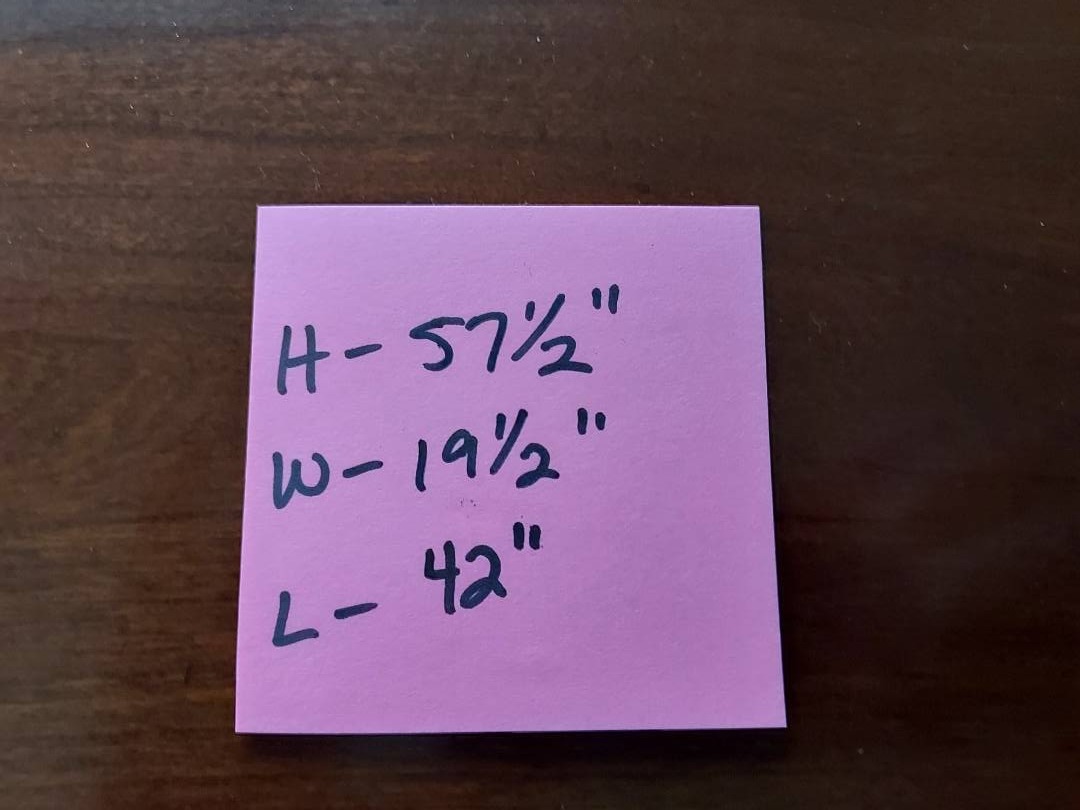 H - 57 1/2"
W - 19 1/2"
L - 42"